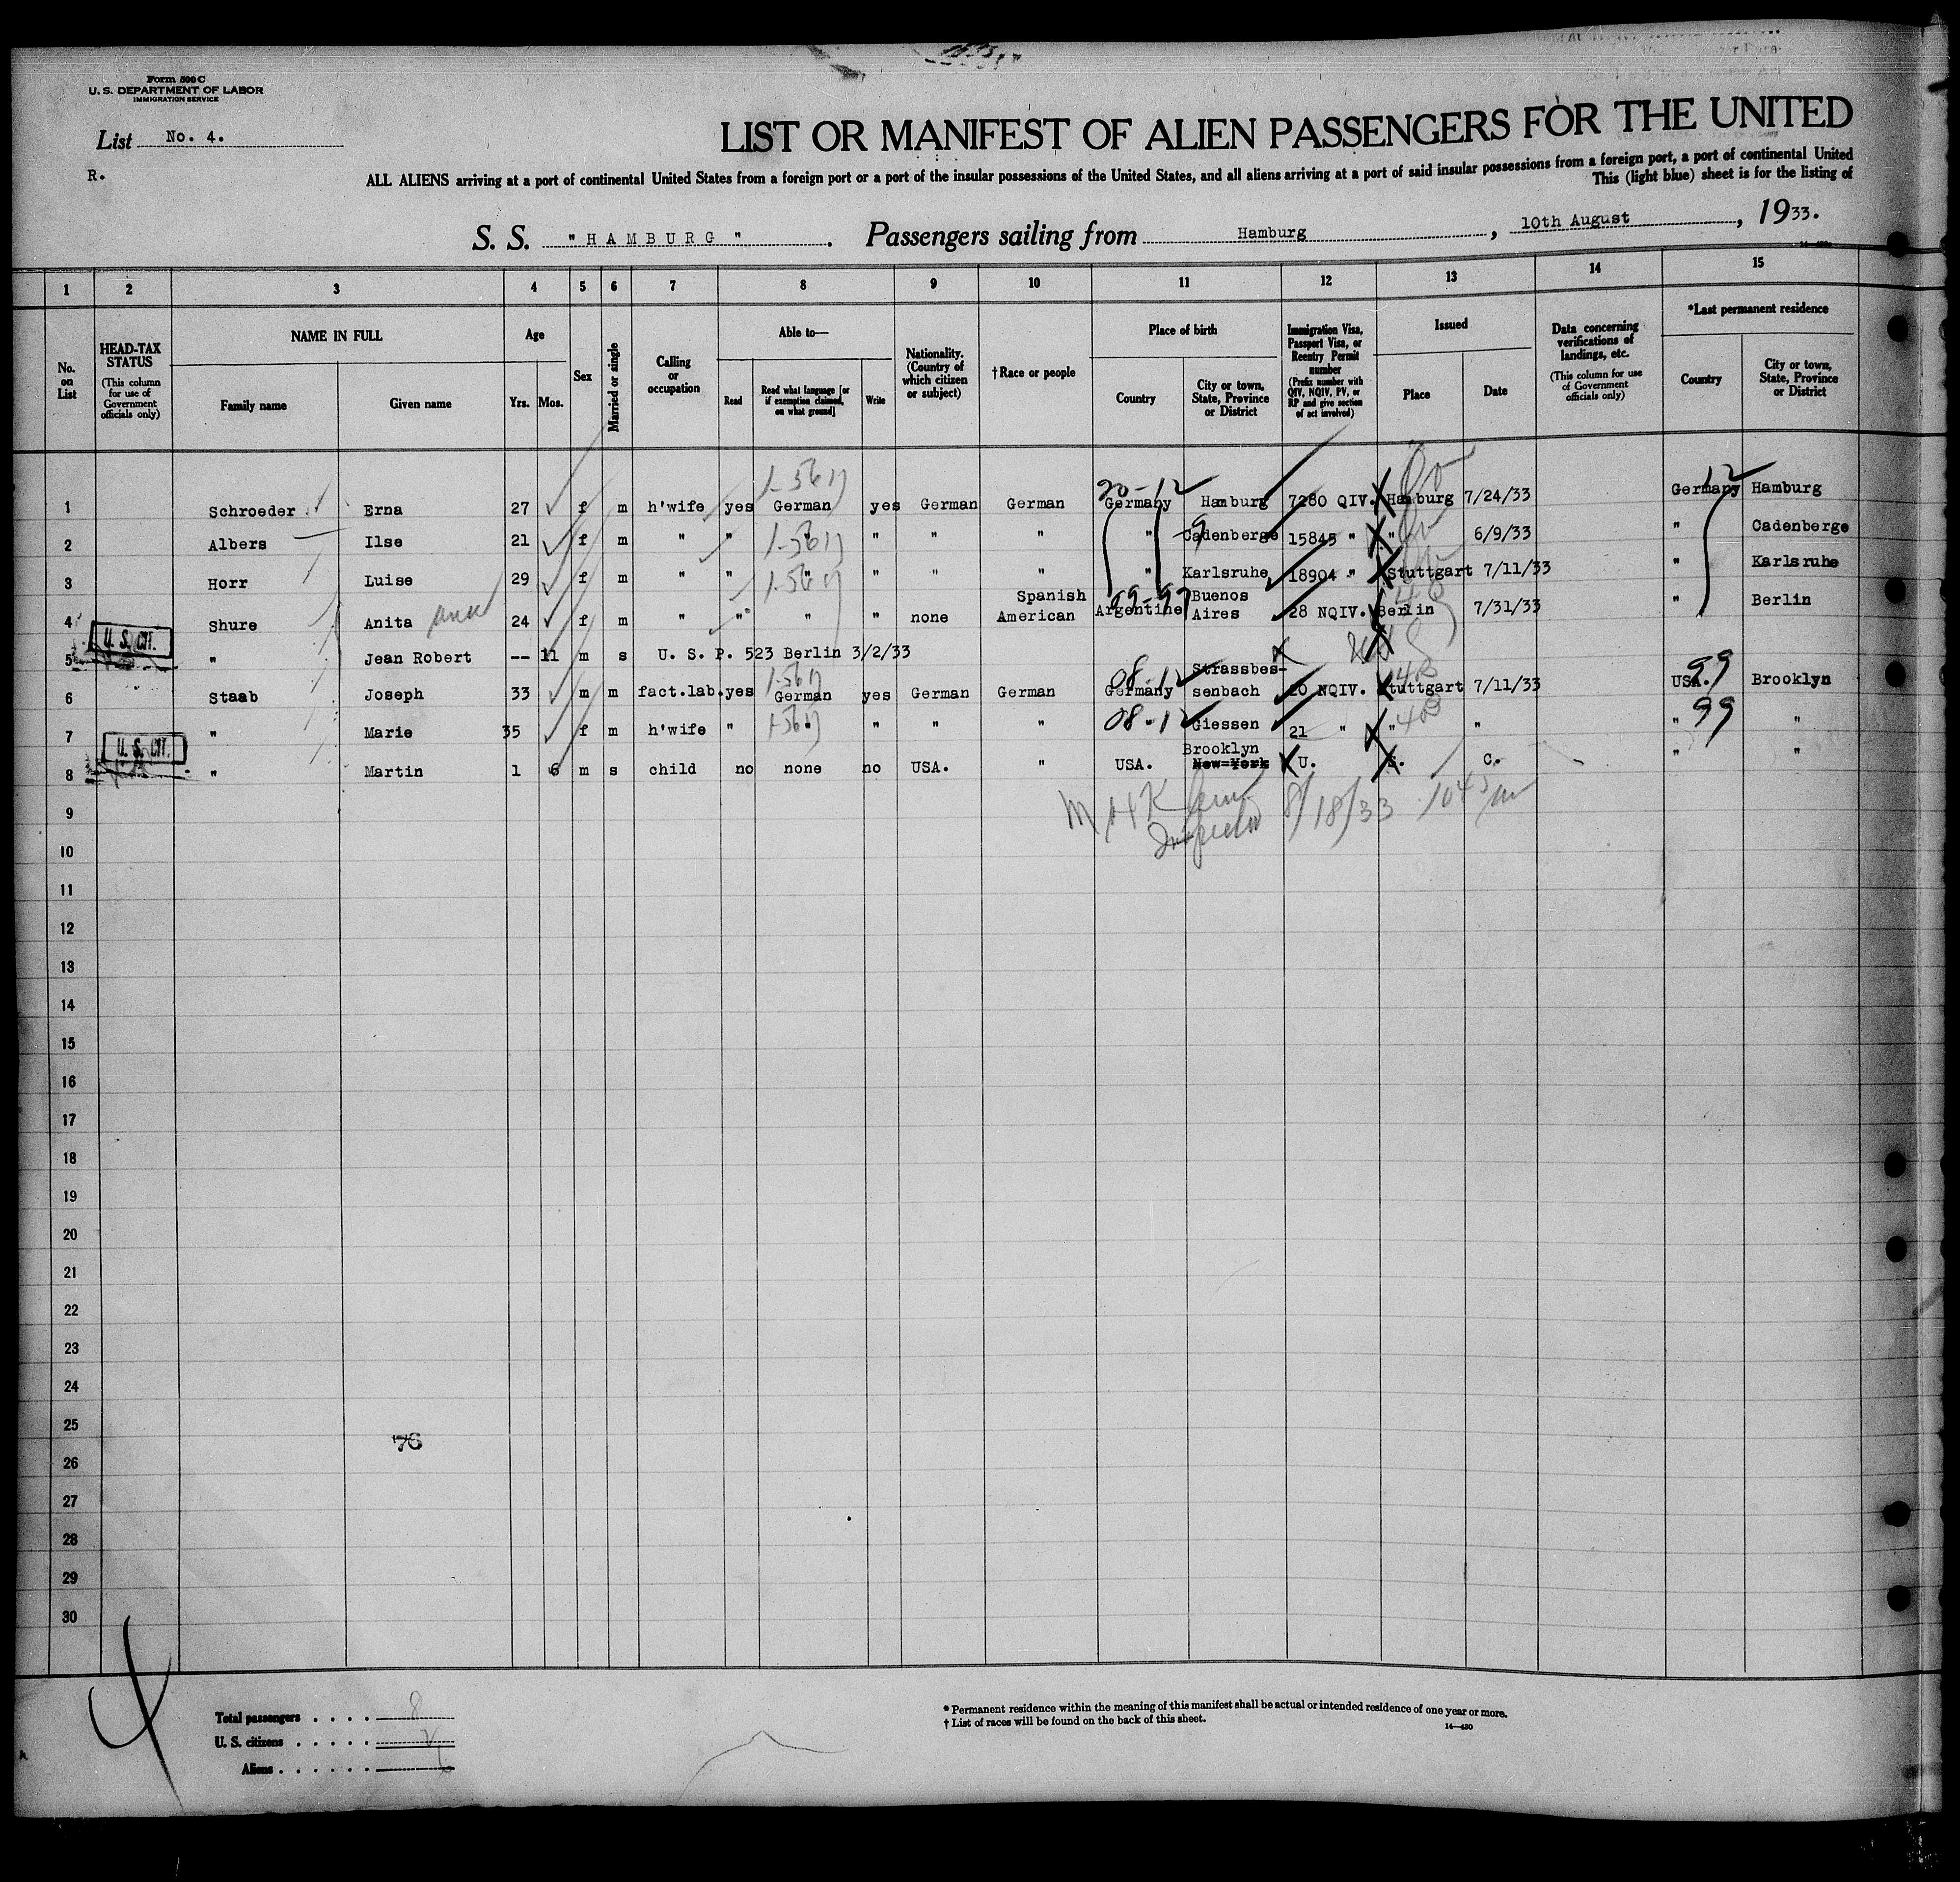 Form 500 C
U. S. DEPARTMENT OF LABOR
IMMIGRATION SERVICE
List No. 4.
R.
LIST OR MANIFEST OF ALIEN PASSENGERS FOR THE UNITED
ALL ALIENS arriving at a port of continental United States from a foreign port or a port of the insular possessions of the United States, and all aliens arriving at a port of said insular possessions from a foreign port, a port of continental United
This (light blue) sheet is for the listing of
S. S. "HAMBURG". Passengers sailing from Hamburg, 10th August, 1933.
1 2 3 4 5 6 7 8 9 10 11 12 13 14 15
No. on List
HEAD-TAX STATUS
(This column for use of Government officials only)
NAME IN FULL
Family name
Given name
Age
Yrs. Mos.
Sex
Married or single
Calling or occupation
Able to—
Read
Read what language [or if exemption claimed, on what ground]
Write
Nationality. (Country of which citizen or subject)
†Race or people
Place of birth
Country
City or town, State, Province or District
Immigration Visa, Passport Visa, or Reentry Permit number
(Prefix number with QIV, NQIV, PV, or RP and give section of act involved)
Issued
Place
Date
Data concerning verifications of landings, etc.
(This column for use of Government officials only)
*Last permanent residence
Country
City or town, State, Province or District
1 Schroeder Erna 27 f m h'wife yes German yes German German Germany Hamburg 7280 QIV. Hamburg 7/24/33 Germany Hamburg
2 Albers Ilse 21 f m " " " " " " " Cadenberge 15845 " " 6/9/33 " Cadenberge
3 Horr Luise 29 f m " " " " " " " Karlsruhe 18904 " Stuttgart 7/11/33 " Karlsruhe
4 Shure Anita 24 f m " " " " none Spanish American Argentine Buenos Aires 28 NQIV. Berlin 7/31/33 " Berlin
U. S. CIT.
5 " Jean Robert -- 11 m s U. S. P. 523 Berlin 3/2/33
6 Staab Joseph 33 m m fact.lab. yes German yes German German Germany Strassbessenbach 20 NQIV. Stuttgart 7/11/33 USA. Brooklyn
7 " Marie 35 f m h'wife " " " " " Giessen 21 " " " " "
U. S. CIT.
8 " Martin 1 6 m s child no none no USA. " USA. Brooklyn New=York U. S. C. " "
20-12
12
99-97
08-12
99
08-12
99
8/18/33
9
10
11
12
13
14
15
16
17
18
19
20
21
22
23
24
25
76
26
27
28
29
30
Total passengers . . . . 8
U. S. citizens . . . . . 2
Aliens . . . . . . 6
* Permanent residence within the meaning of this manifest shall be actual or intended residence of one year or more.
† List of races will be found on the back of this sheet.
14—430
4